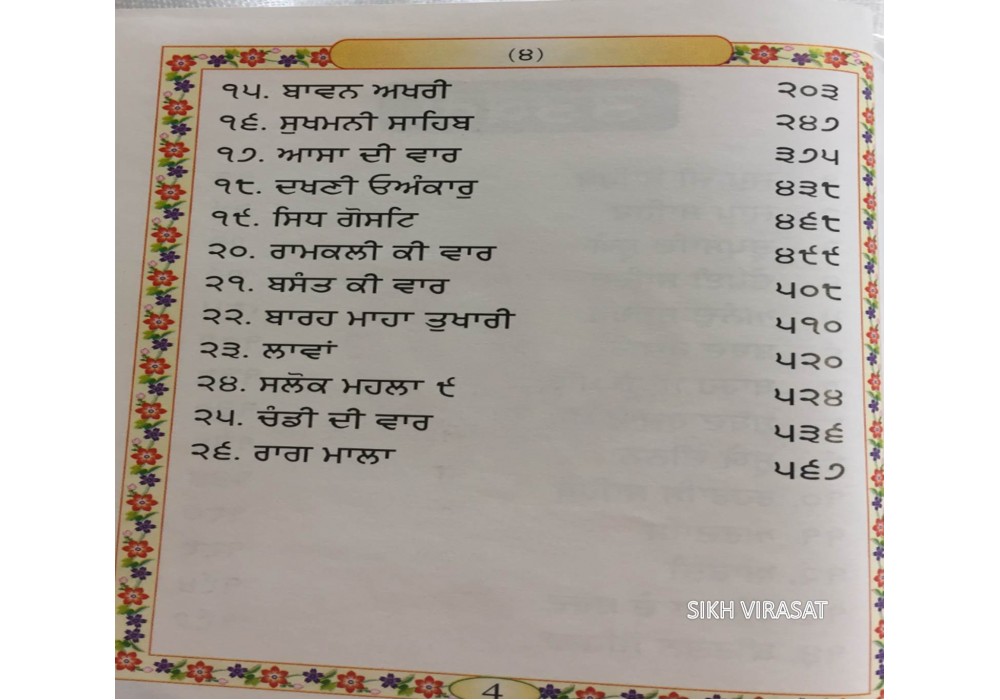 (੪)
੧੫. ਬਾਵਨ ਅਖਰੀ ੨੦੩
੧੬. ਸੁਖਮਨੀ ਸਾਹਿਬ ੨੪੭
੧੭. ਆਸਾ ਦੀ ਵਾਰ ੩੭੫
੧੮. ਦਖਣੀ ਓਅੰਕਾਰੁ ੪੩੮
੧੯. ਸਿਧ ਗੋਸਟਿ ੪੬੮
੨੦. ਰਾਮਕਲੀ ਕੀ ਵਾਰ ੪੯੯
੨੧. ਬਸੰਤ ਕੀ ਵਾਰ ੫੦੮
੨੨. ਬਾਰਹ ਮਾਹਾ ਤੁਖਾਰੀ ੫੧੦
੨੩. ਲਾਵਾਂ ੫੨੦
੨੪. ਸਲੋਕ ਮਹਲਾ ੯ ੫੨੪
੨੫. ਚੰਡੀ ਦੀ ਵਾਰ ੫੩੬
੨੬. ਰਾਗ ਮਾਲਾ ੫੬੭
SIKH VIRASAT
4